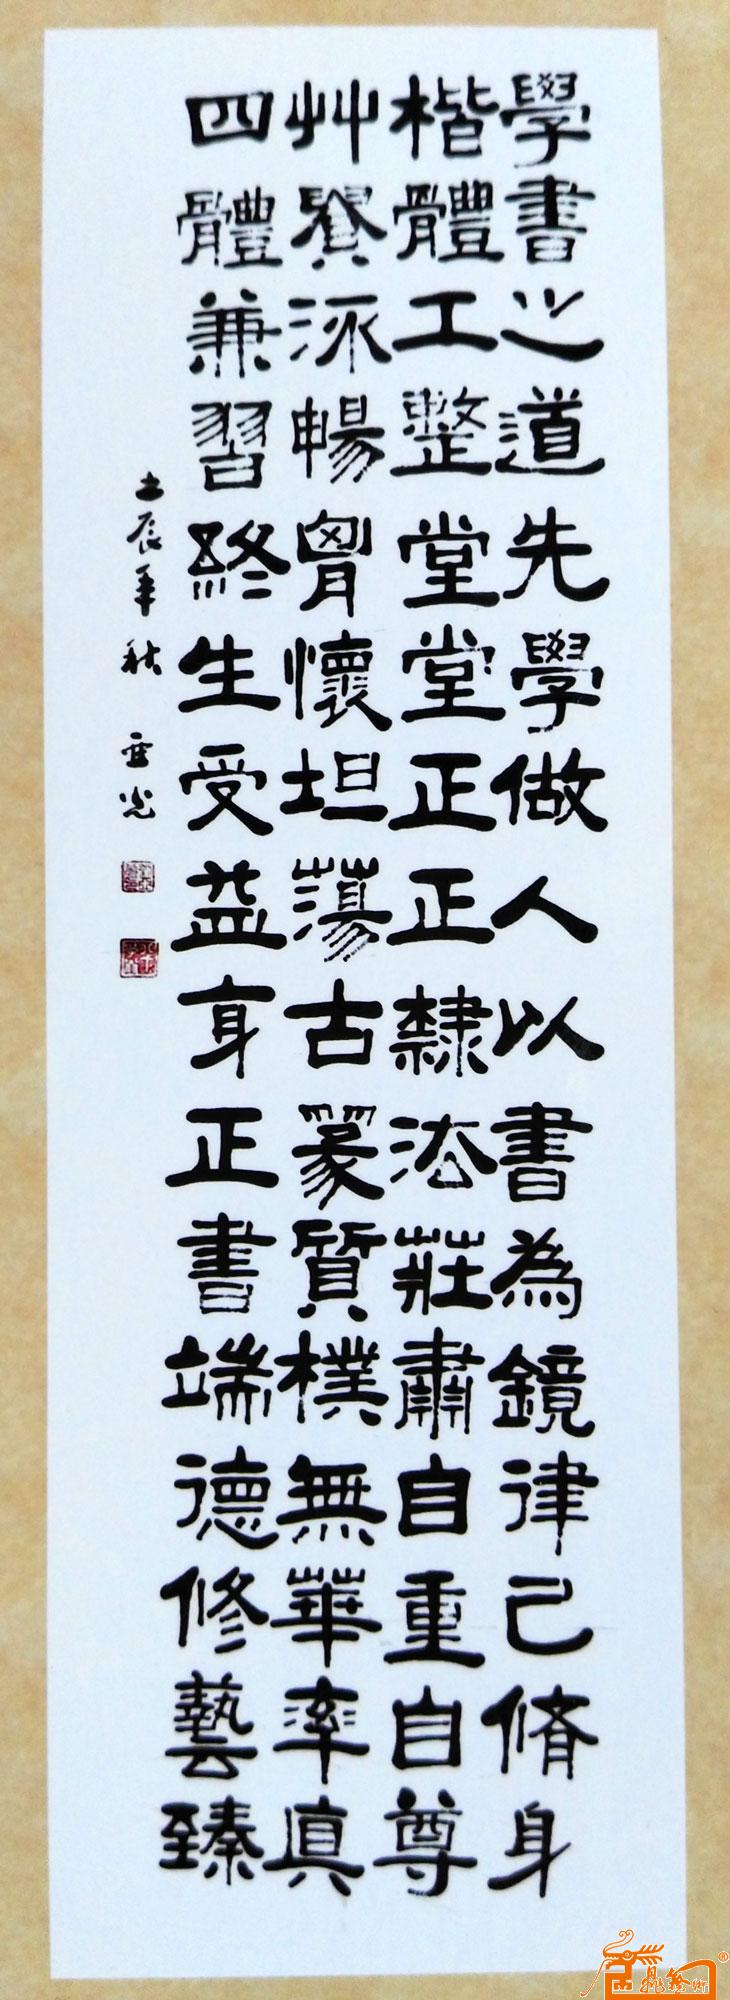 學書之道先學做人以書為鏡律己脩身
楷體工整堂堂正正隸法莊肅自重自尊
艸賛泳暢胷懷坦蕩古篆質樸無華率真
四體兼習終生受益身正書端德修藝臻
壬辰年秋 雲光